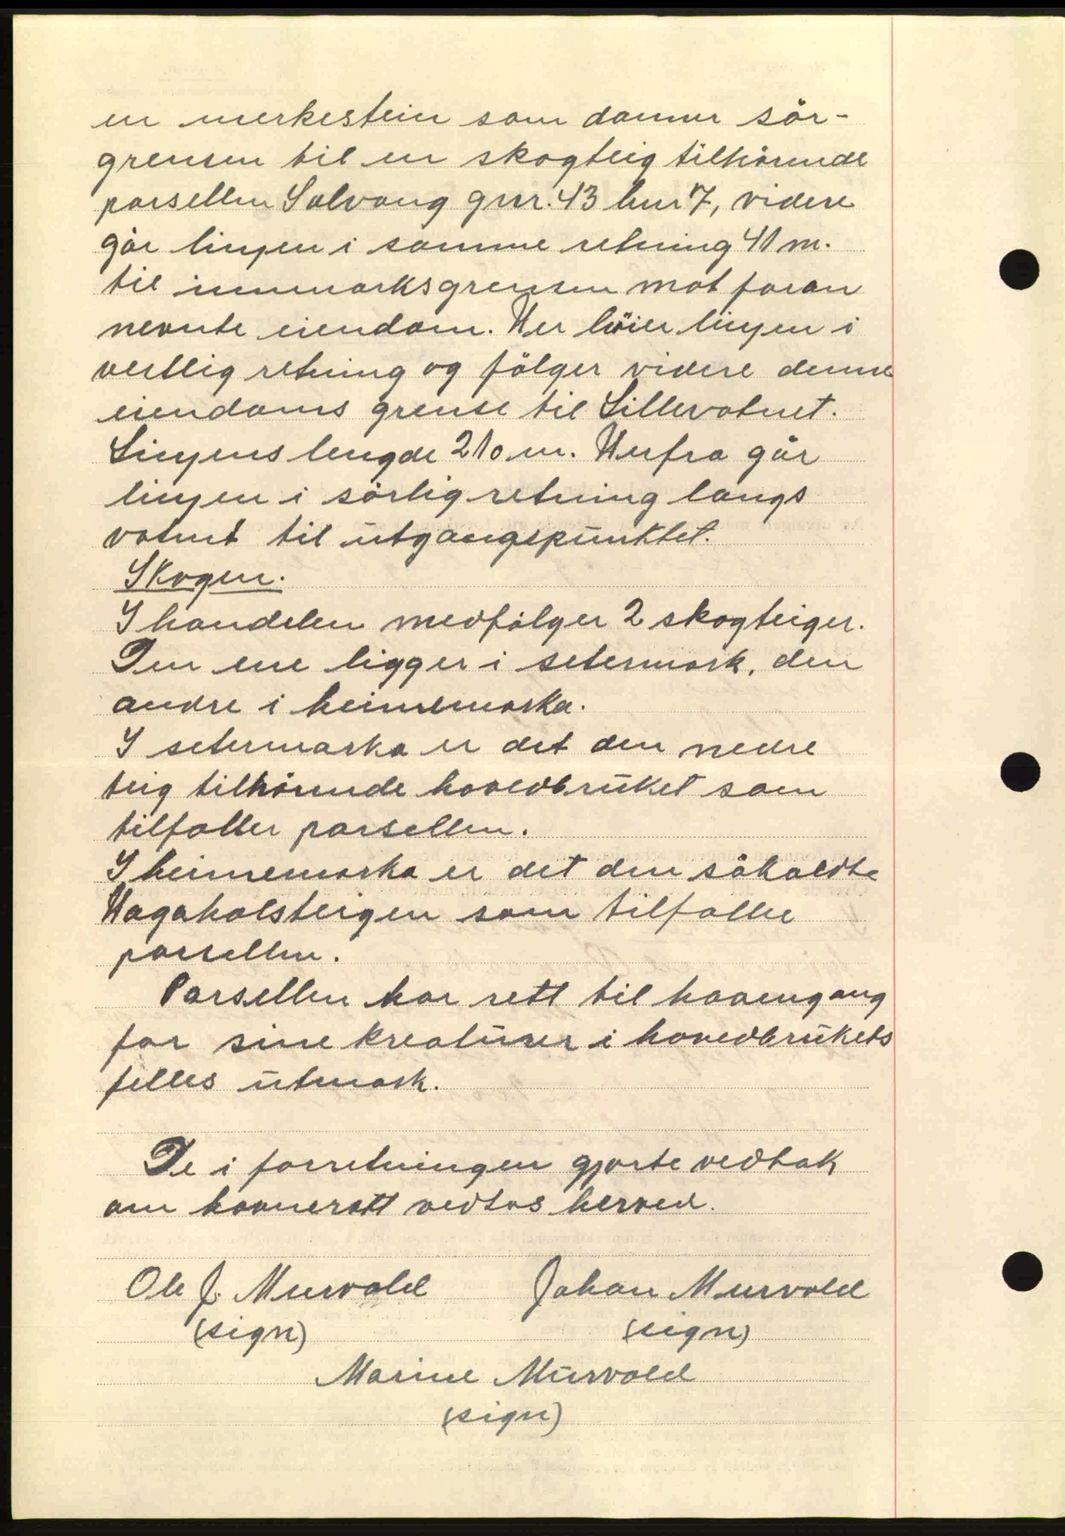 en merkestein som danner sör-
grensen til en skogteig tilhörende
parsellen Solvang gnr. 43 bnr 7, videre
går linjen i samme retning 41 m.
til innmarksgrensen mot foran
nevnte eiendom. Her böier linjen i
vestlig retning og fölger videre denne
eiendoms grense til Lillevatnet.
Linjens lengde 210 m. Herfra går
linjen i sörlig retning langs
vatnet til utgangspunktet.
Skogen.
I handelen medfölger 2 skogteiger.
Den ene ligger i setermark, den
andre i heimemarka.
I setermarka er det den nedre
teig tilhörende hovedbruket som
tilfaller parsellen.
I heimemarka er det den såkaldte
Hagaholsteigen som tilfaller
parsellen.
Parsellen har rett til havnegang
for sine kreaturer i hovedbrukets
felles utmark.
De i forretningen gjorte vedtak
om havnerett vedtas herved.
Ole J. Murvold Johan Murvold
(sign) (sign)
Marine Murvold
(sign)